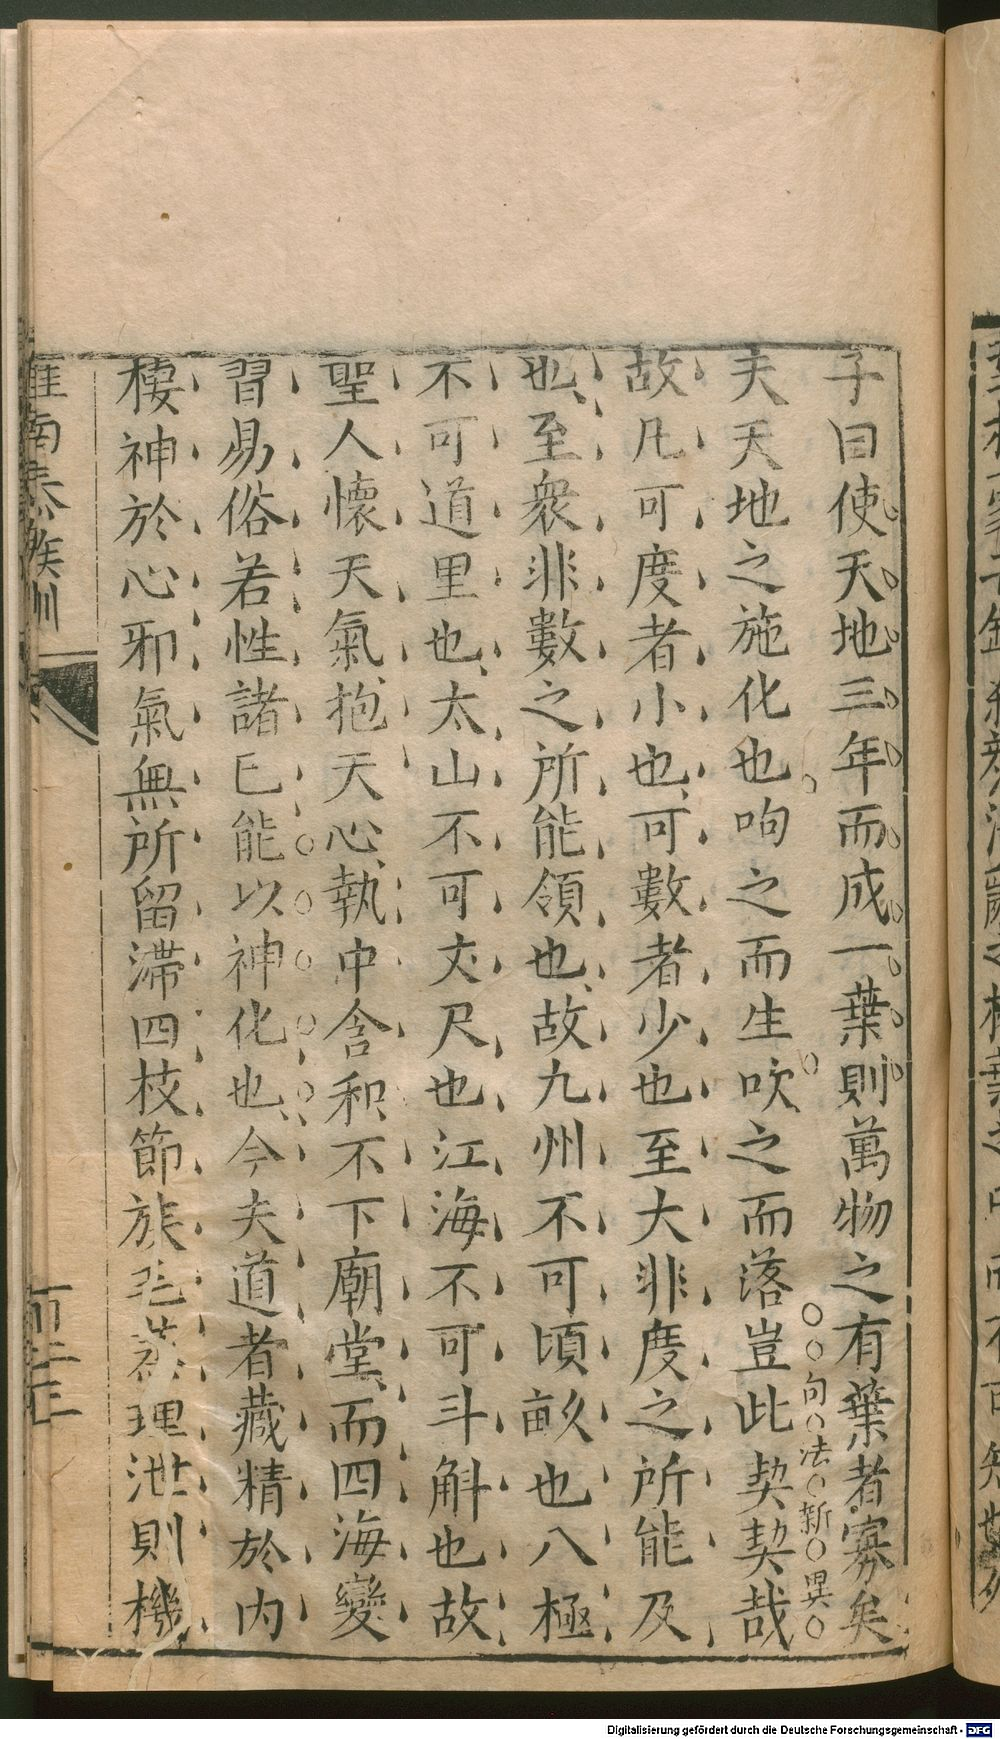 子曰使天地三年而成一葉則萬物之有葉者寡矣
夫天地之施化也呴之而生吹之而落豈此契契哉
句法新異
故凡可度者小也可數者少也至大非度之所能及
也至衆非數之所能領也故九州不可頃畝也八極
不可道里也太山不可丈尺也江海不可斗斛也故
聖人懷天氣抱天心執中含和不下廟堂而四海變
習易俗若性諸已能以神化也今夫道者藏精於内
棲神於心邪氣無所留滯四枝節族毛蒸理泄則機
淮南泰族訓
Digitalisierung gefördert durch die Deutsche Forschungsgemeinschaft - DFG